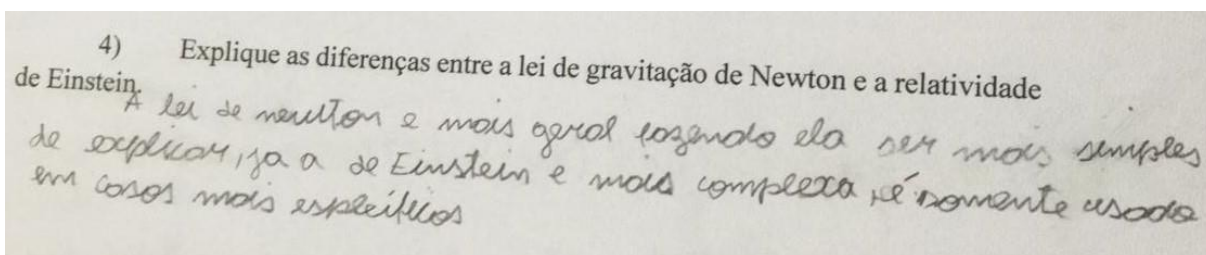 4) Explique as diferenças entre a lei de gravitação de Newton e a relatividade
de Einstein.
A lei de newton e mais geral fazendo ela ser mais simples
de explicar, ja a de Einstein e mais complexa, e é somente usada
em casos mais espleificos